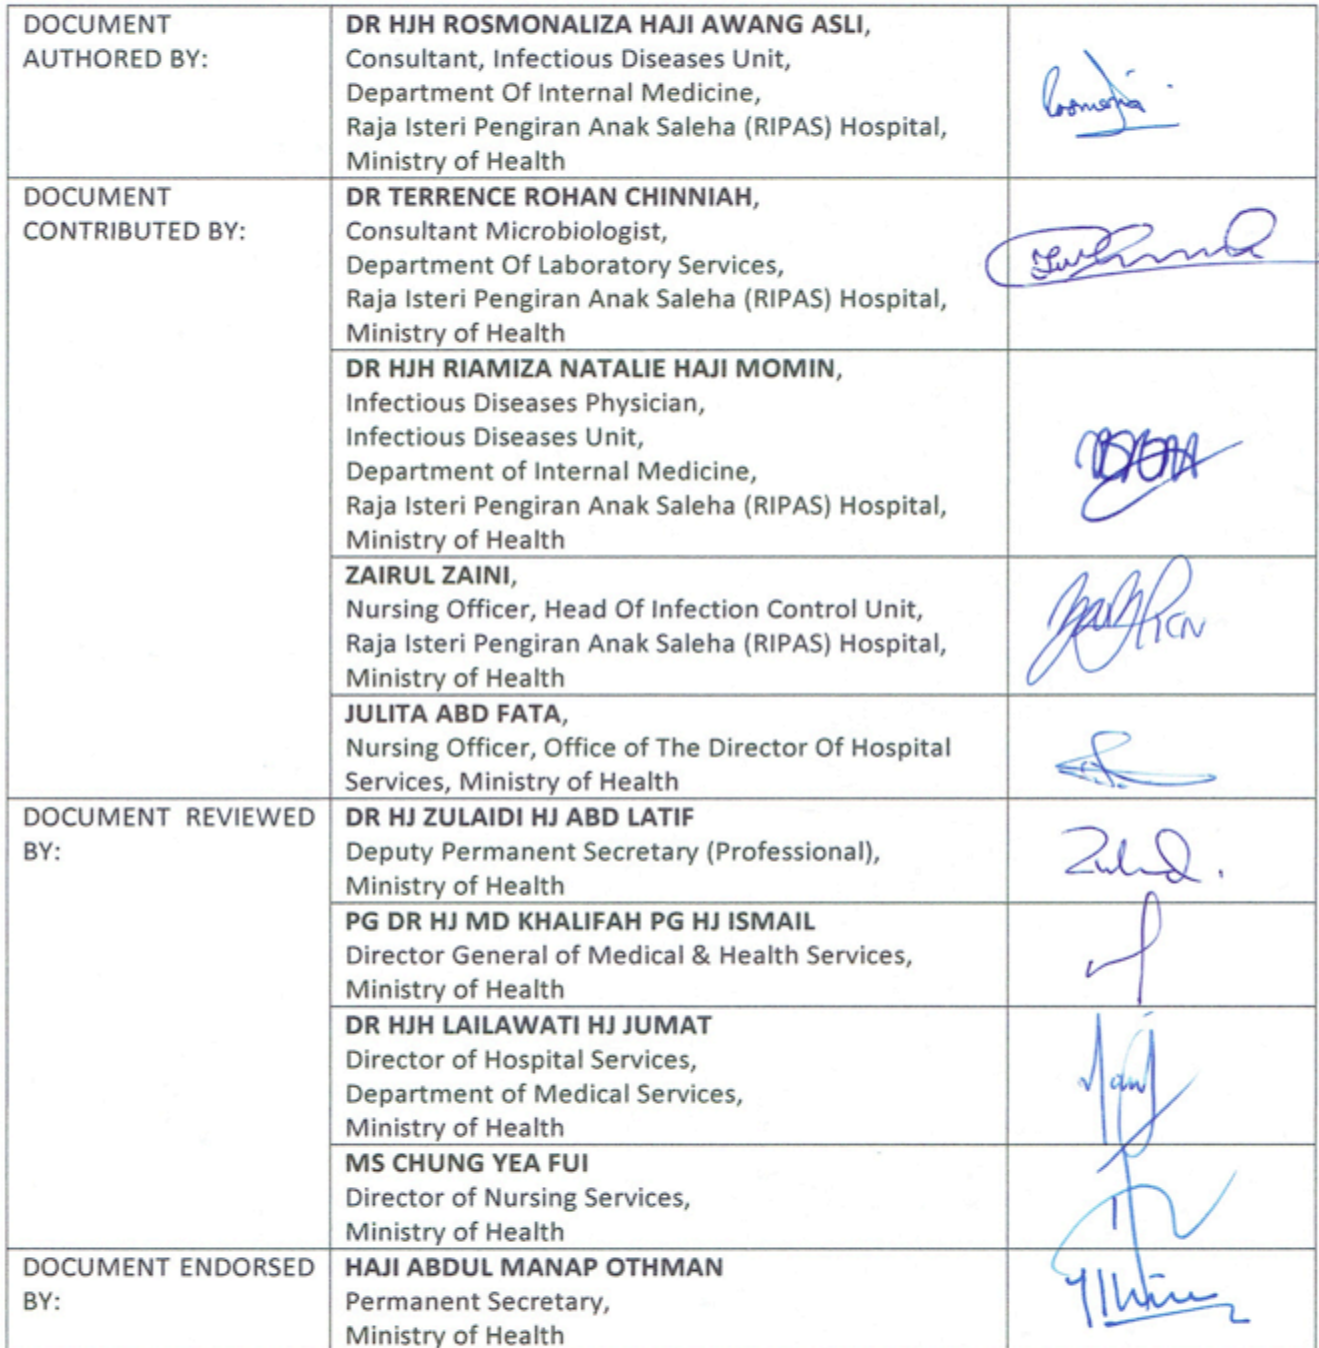 DOCUMENT
AUTHORED BY:
DR HJH ROSMONALIZA HAJI AWANG ASLI,
Consultant, Infectious Diseases Unit,
Department Of Internal Medicine,
Raja Isteri Pengiran Anak Saleha (RIPAS) Hospital,
Ministry of Health
DOCUMENT
CONTRIBUTED BY:
DR TERRENCE ROHAN CHINNIAH,
Consultant Microbiologist,
Department Of Laboratory Services,
Raja Isteri Pengiran Anak Saleha (RIPAS) Hospital,
Ministry of Health
DR HJH RIAMIZA NATALIE HAJI MOMIN,
Infectious Diseases Physician,
Infectious Diseases Unit,
Department of Internal Medicine,
Raja Isteri Pengiran Anak Saleha (RIPAS) Hospital,
Ministry of Health
ZAIRUL ZAINI,
Nursing Officer, Head Of Infection Control Unit,
Raja Isteri Pengiran Anak Saleha (RIPAS) Hospital,
Ministry of Health
JULITA ABD FATA,
Nursing Officer, Office of The Director Of Hospital
Services, Ministry of Health
DOCUMENT REVIEWED
BY:
DR HJ ZULAIDI HJ ABD LATIF
Deputy Permanent Secretary (Professional),
Ministry of Health
PG DR HJ MD KHALIFAH PG HJ ISMAIL
Director General of Medical & Health Services,
Ministry of Health
DR HJH LAILAWATI HJ JUMAT
Director of Hospital Services,
Department of Medical Services,
Ministry of Health
MS CHUNG YEA FUI
Director of Nursing Services,
Ministry of Health
DOCUMENT ENDORSED
BY:
HAJI ABDUL MANAP OTHMAN
Permanent Secretary,
Ministry of Health